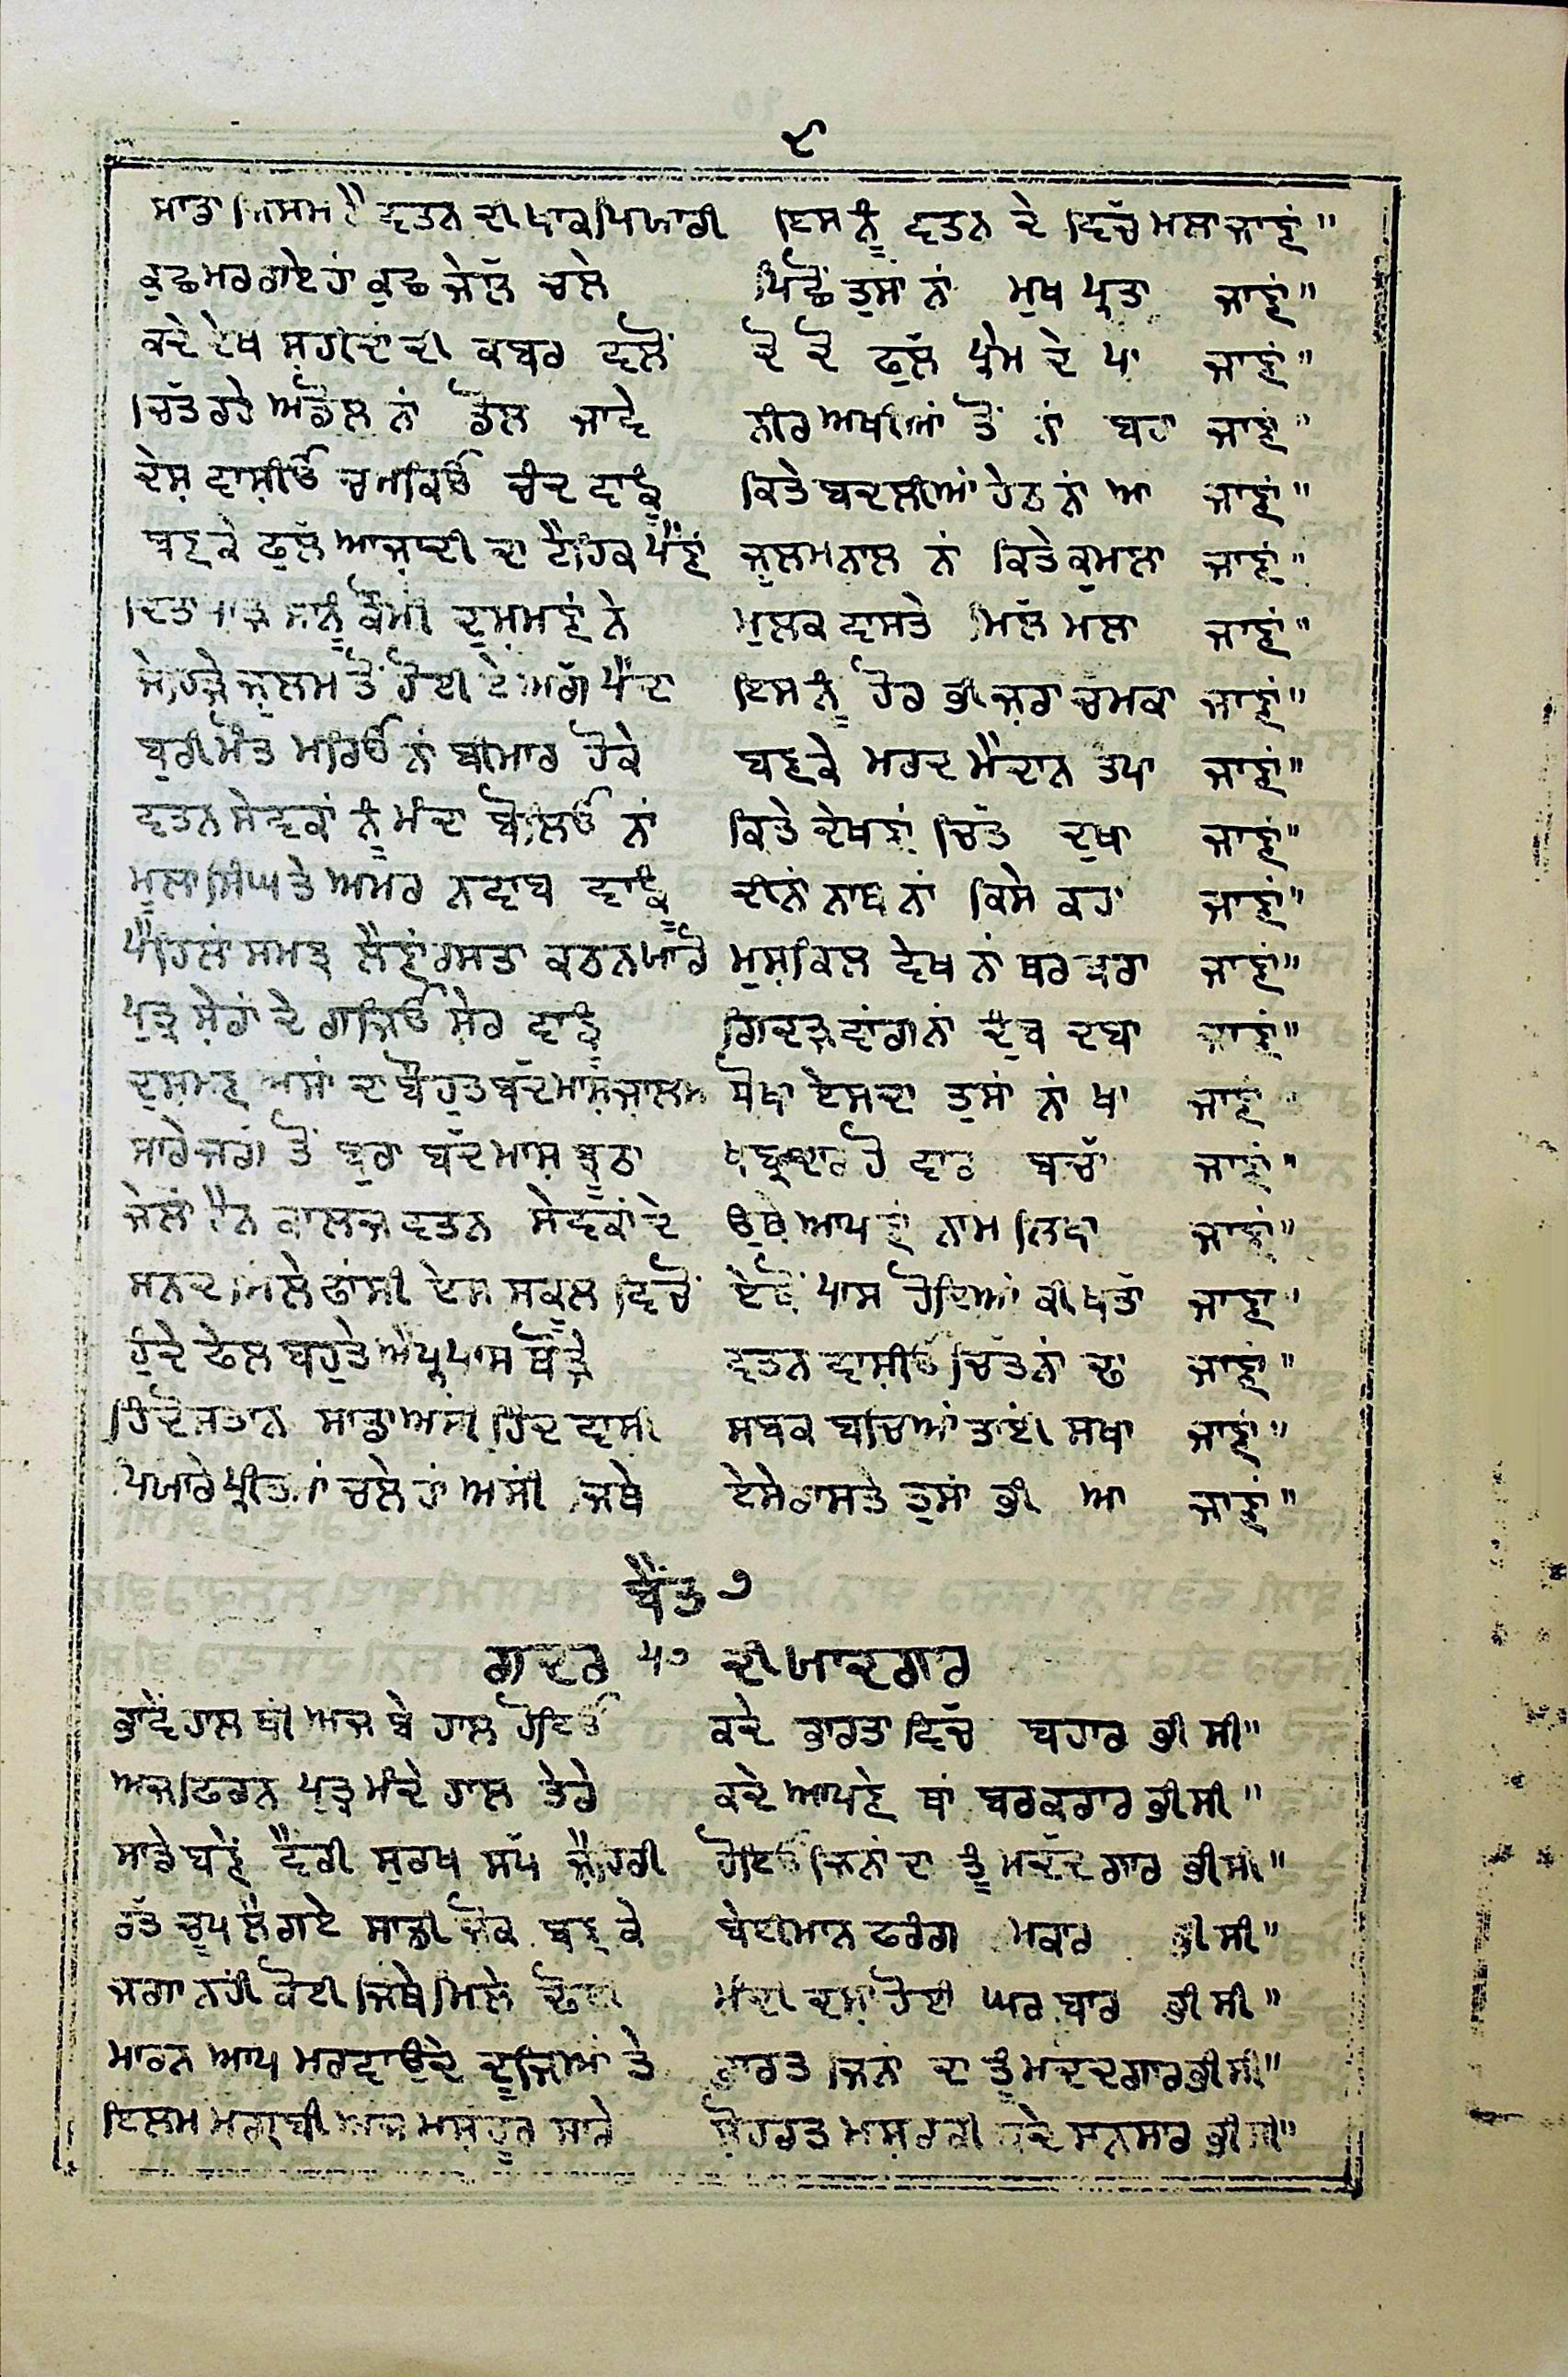 ੯
ਸਾਡਾ ਜਿਸਮ ਹੈ ਵਤਨ ਦੀ ਖਾਕ ਪਿਯਾਰੀ ਇਸ ਨੂੰ ਵਤਨ ਦੇ ਵਿਚੱ ਮਲਾ ਜਾਣਾਂ"
ਕੁਛ ਮਰ ਗਏ ਹਾਂ ਕੁਛ ਜੇਲੱ ਚਲੇ ਪਿਛੋਂ ਤੁਸਾਂ ਨਾਂ ਮੁਖ ਪ੍ਰਤਾ ਜਾਣਾਂ"
ਕਦੇ ਦੇਖ ਸ਼ਹੀਦਾਂ ਦੀ ਕਬਰ ਵਲੋਂ ਦੋ ਦੋ ਫੁਲੱ ਪ੍ਰੇਮ ਦੇ ਪਾ ਜਾਣਾਂ"
ਚਿਤੱ ਰਹੇ ਅਡੋਲ ਨਾਂ ਡੋਲ ਜਾਵੇ ਨੀਰ ਅਖੀਆਂ ਤੋਂ ਨਾਂ ਬਹਾ ਜਾਣਾਂ"
ਦੇਸ਼ ਵਾਸ਼ੀਓ ਚਮਕਿਓ ਚੰਦ ਵਾਂਙੂ ਕਿਤੇ ਬਦਲੀਆਂ ਹੇਠ ਨਾਂ ਆ ਜਾਣਾਂ"
ਬਣਕੇ ਫੁਲੱ ਆਜ਼ਾਦੀ ਦਾ ਟੈਹਿਕ ਪੈਣਾਂ ਜ਼ੁਲਮ ਨਾਲ ਨਾਂ ਕਿਤੇ ਕੁਮਲਾ ਜਾਣਾਂ"
ਦਿਤਾ ਪਾੜ ਸਾਨੂੰ ਕੌਮੀ ਦੁਸ਼ਮਣਾਂ ਨੇ ਮੁਲਕ ਵਾਸਤੇ ਮਿਲੱ ਮਲਾ ਜਾਣਾਂ"
ਜੇਹੜੇ ਜ਼ੁਲਮ ਤੋਂ ਹੋਈ ਏ ਅਗੱ ਪੈਦਾ ਇਸ ਨੂੰ ਹੋਰ ਭੀ ਜ਼ਰਾ ਚਮਕਾ ਜਾਣਾਂ"
ਬੁਰੀ ਮੌਤ ਮਰਿਓ ਨਾਂ ਬੀਮਾਰ ਹੋਕੇ ਬਣਕੇ ਮਰਦ ਮੈਦਾਨ ਤਪਾ ਜਾਣਾਂ"
ਵਤਨ ਸੇਵਕਾਂ ਨੂੰ ਮੰਦਾ ਬੋਲਿਓ ਨਾਂ ਕਿਤੇ ਦੇਖਣਾਂ ਚਿਤੱ ਦੁਖਾ ਜਾਣਾਂ"
ਮੂਲਾ ਸਿੰਘ ਤੇ ਅਮਰ ਨਵਾਬ ਵਾਂਙੂ ਦੀਨਾਂ ਨਾਥ ਨਾਂ ਕਿਸੇ ਕਹਾ ਜਾਣਾਂ"
ਪੈਹਿਲਾਂ ਸਮਝ ਲੈਣਾਂ ਰਸਤਾ ਕਠਨ ਯਾਰੋ ਮੁਸ਼ਕਿਲ ਵੇਖ ਨਾਂ ਥਰਥਰਾ ਜਾਣਾਂ"
ਪੁਤ੍ਰ ਸ਼ੇਰਾਂ ਦੇ ਗਜਿਓ ਸ਼ੇਰ ਵਾਂਙੂ ਗਿਦੜ ਵਾਂਗ ਨਾਂ ਦੁੰਬ ਦਬਾ ਜਾਣਾਂ"
ਦੁਸ਼ਮਣ ਅਸਾਂ ਦਾ ਬੌਹਤ ਬਦੱਮਾਸ਼ ਜ਼ਾਲਮ ਧੋਖਾ ਏਸਦਾ ਤੁਸਾਂ ਨਾਂ ਖਾ ਜਾਣਾਂ"
ਸਾਰੇ ਜਗ ਤੋਂ ਬੁਰਾ ਬਦੱਮਾਸ਼ ਝੂਠਾ ਖਬ੍ਰਦਾਰ ਹੋ ਵਾਰ ਬਚਾੱ ਜਾਣਾਂ"
ਜੇਲਾਂ ਹੈਨ ਕਾਲਜ ਵਤਨ ਸੇਵਕਾਂ ਦੇ ਓਥੇ ਆਪਣਾਂ ਨਾਮ ਲਿਖਾ ਜਾਣਾਂ"
ਸਨਦ ਮਿਲੇ ਫਾਂਸੀ ਏਸ ਸਕੂਲ ਵਿਚੋਂ ਏਥੋਂ ਪਾਸ ਹੋਦਿਆਂ ਕੀ ਖਤਾੱ ਜਾਣਾਂ"
ਹੁੰਦੇ ਫੇਲ ਬਹੁਤੇ ਐਪ੍ਰ ਪਾਸ ਥੋੜ੍ਹੇ ਵਤਨ ਵਾਸ਼ੀਓ ਚਿਤੱ ਨਾਂ ਢਾ ਜਾਣਾਂ"
ਹਿੰਦੋਸਤਾਨ ਸਾਡਾ ਅਸੀਂ ਹਿੰਦ ਵਾਸੀ ਸਬਕ ਬਚਿਆਂ ਤਾਈਂ ਸਖਾ ਜਾਣਾਂ"
ਪਯਾਰੇ ਪ੍ਰੀਤਮਾਂ ਚਲੇ ਹਾਂ ਅਸੀਂ ਜਿਥੇ ਏਸੇ ਰਾਸਤੇ ਤੁਸਾਂ ਭੀ ਆ ਜਾਣਾਂ"
ਬੈਂਤ ੭
ਗਦਰ ੫੭ ਦੀ ਯਾਦਗਾਰ
ਭਾਵੇਂ ਹਾਲ ਥੀਂ ਅਜ ਬੇ ਹਾਲ ਹੋਇਓਂ ਕਦੇ ਭਾਰਤਾ ਵਿਚੱ ਬਹਾਰ ਭੀ ਸੀ"
ਅਜ ਫਿਰਨ ਪੁਤ੍ਰ ਮੰਦੇ ਹਾਲ ਤੇਰੇ ਕਦੇ ਆਪਣੇ ਥਾਂ ਬਰਕਰਾਰ ਭੀ ਸੀ"
ਸਾਡੇ ਬਣੇਂ ਵੈਰੀ ਸੁਰਖ ਸਪੱ ਜ਼ੈਹਰੀ ਹੋਇਓਂ ਜਿਨਾਂ ਦਾ ਤੂੰ ਮਦੱਦਗਾਰ ਭੀ ਸੀ"
ਰਤੱ ਚੂਪ ਲੈ ਗਏ ਸਾਡੀ ਜੋਕ ਬਣਕੇ ਬੇਈਮਾਨ ਫਰੰਗ ਮਕਾਰ ਭੀ ਸੀ"
ਜਗਾ ਨਹੀਂ ਕੋਈ ਜਿਥੇ ਮਿਲੇ ਢੋਈ ਮੰਦੀ ਦਸ਼ਾ ਹੋਈ ਘਰ ਬਾਰ ਭੀ ਸੀ"
ਮਾਰਨ ਆਪ ਮਰਵਾਉਂਦੇ ਦੂਜਿਆਂ ਤੇ ਭਾਰਤ ਜਿਨਾਂ ਦਾ ਤੂੰ ਮਦਦਗਾਰ ਭੀ ਸੀ"
ਇਲਮ ਮਗ੍ਰਬੀ ਅਜ ਮਸ਼ਹੂਰ ਸਾਰੇ ਸ਼ੋਹਰਤ ਮਸ਼ਰਕੀ ਕਦੇ ਸਨਸਾਰ ਭੀ ਸੀ"